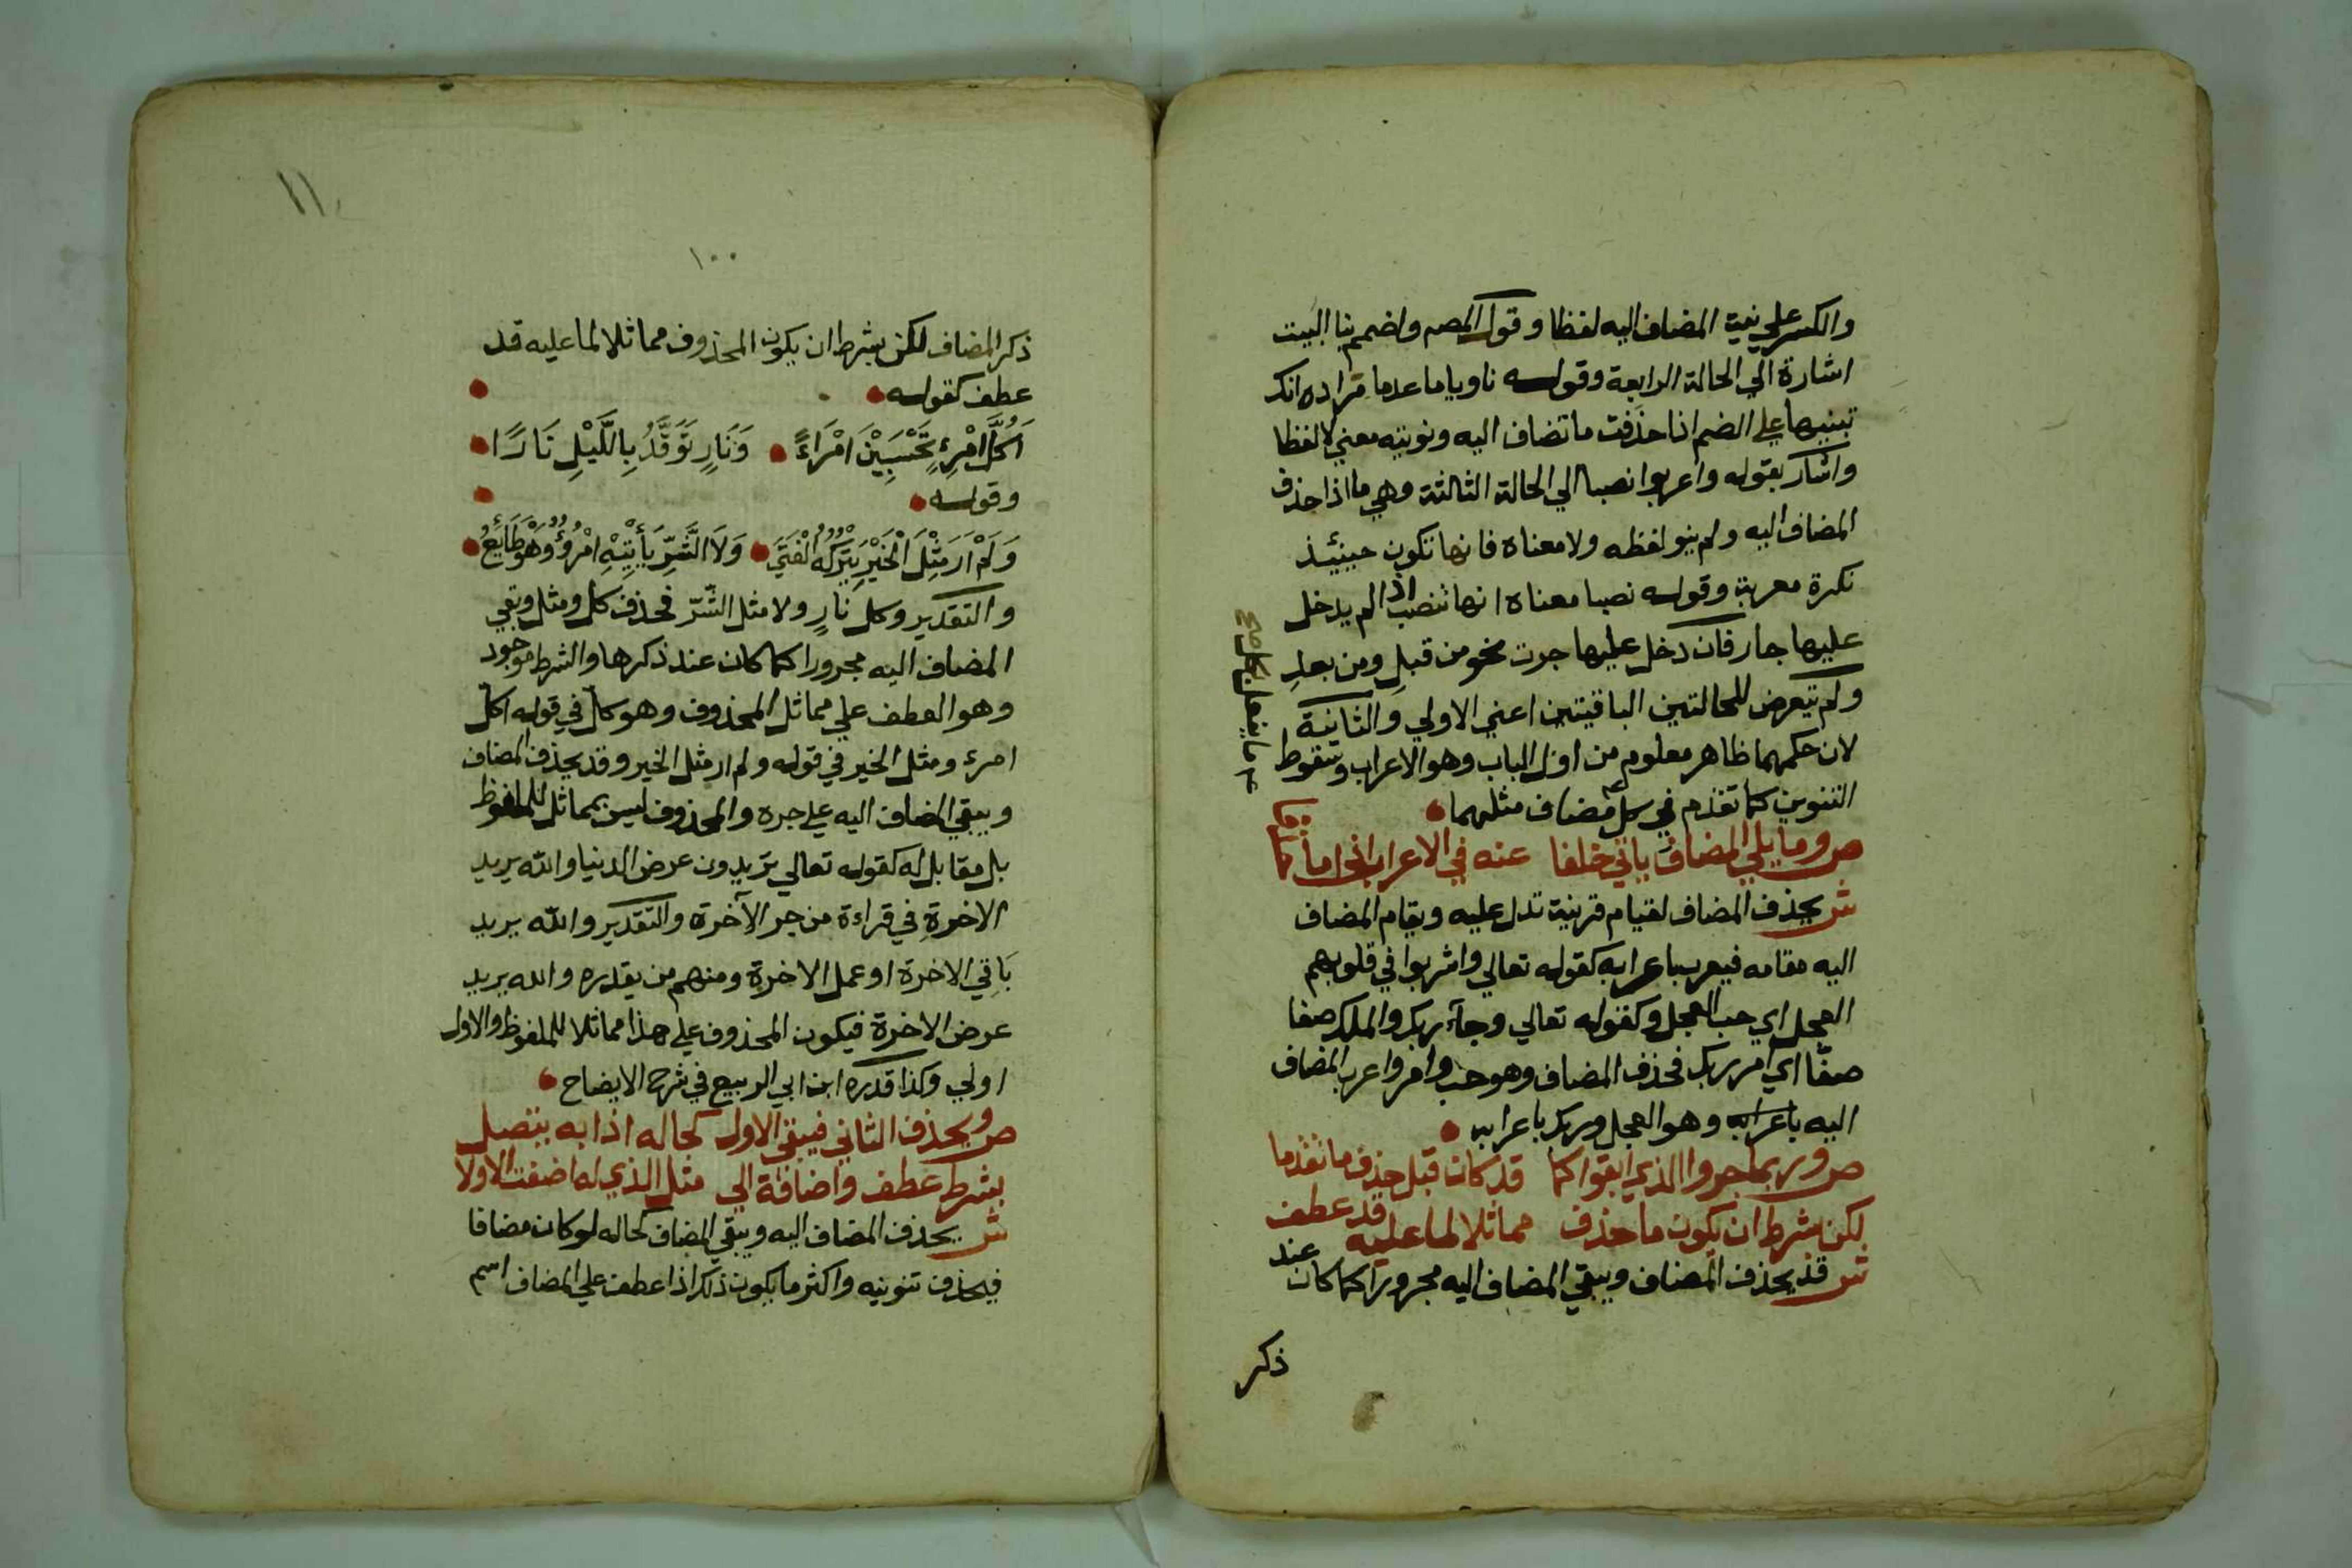 والكسر علي نية المضاف اليه لفظا وقول المصه واضمم بنا البيت
اشارة الي الحالة الرابعة وقوله ناويا ما عدما مراده انك
تبنيها علي الضم اذا حذفت ما تضاف اليه ونويته معني لا لفظا
واشار بقوله واعربوا نصبا الي الحالة الثالثة وهي ما اذا حذف
المضاف اليه ولم ينو لفظه ولا معناه فانها تكون حينئذ
نكرة معربة وقوله نصبا معناه انها تنصب اذا لم يدخل
عليها جار فان دخل عليها جرت نحو من قبلٍ ومن بعدٍ
ولم يتعرض للحالتين الباقيتين اعني الاولي والثانية
لان حكمهما ظاهر معلوم من اول الباب وهو الاعراب وسقوط
التنوين كما تقدم في كل مضاف مثلهما
ص وما يلي المضاف ياتي خلفا عنه في الاعراب اذا ما
ش يحذف المضاف لقيام قرينة تدل عليه ويقام المضاف
اليه مقامه فيعرب باعرابه كقوله تعالي واشربوا في قلوبهم
العجل اي حب العجل وكقوله تعالي وجآء ربك والملك صفا
صفّا اي امر ربك فحذف المضاف وهو حب وامر واعرب المضاف
اليه باعرابه وهو العجل وربك باعرابه
ص وربما جروا الذي ابقوا كما قد كان قبل حذف ما تقدما
لكن بشرط ان يكون ما حذف مماثلا لما عليه قد عطف
ش قد يحذف المضاف ويبقي المضاف اليه مجرورا كما كان عند
ذكر
١١
١٠٠
ذكر المضاف لكن بشرط ان يكون المحذوف مماثلا لما عليه قد
عطف كقوله
اَكُلَّ امْرِئٍ تَحْسَبِيْنَ امْرَاءً وَنَارٍ تَوَقَّدُ بِاللَّيْلِ نَارًا
وقوله
وَلَمْ اَرَ مِثْلَ الْخَيْرِ يَتْرُكُهُ الْفَتَي وَلَا الشَّرِّ يَأْتِيْهِ امْرُؤٌ وَهْوَ طَائِعُ
والتقدير وكل نارٍ ولا مثل الشّرّ فحذف كل ومثل وبقي
المضاف اليه مجرورا كما كان عند ذكرها والشرط موجود
وهو العطف علي مماثل المحذوف وهو كل في قوله اكل
امرء ومثل الخير في قوله ولم ار مثل الخير وقد يحذف المضاف
ويبقي المضاف اليه علي جره والمحذوف ليس بمماثل للملفوظ
بل مقابل له كقوله تعالي تريدون عرض الدنيا والله يريد
الاخرةِ في قراءة من جر الآخرة والتقدير والله يريد
بَاقِي الاخرة او عمل الاخرة ومنهم من يقدره والله يريد
عرض الاخرة فيكون المحذوف علي هذا مماثلا للملفوظ والاول
اولي وكذا قدره ابن ابي الربيع في شرح الايضاح
ص ويحذف الثاني فيبقي الاول كحاله اذا به يتصل
بشرط عطف واضافة الي مثل الذي له اضفت الاولا
ش يحذف المضاف اليه ويبقي المضاف كحاله لو كان مضافا
فيحذف تنوينه واكثر ما يكون ذلك اذا عطف علي المضاف اسم